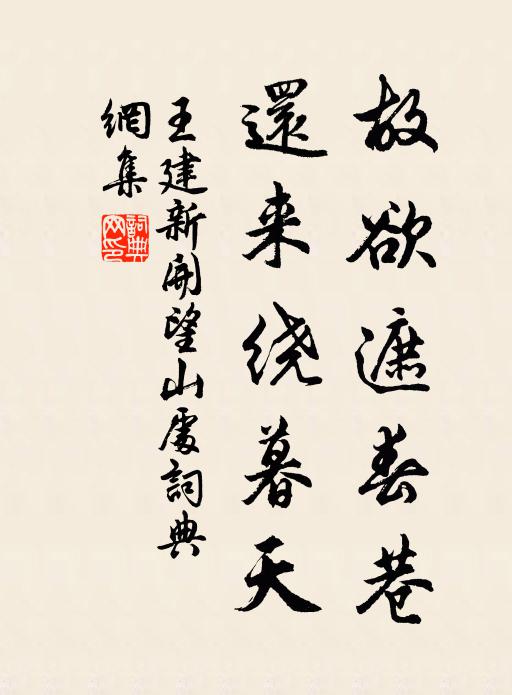 故欲遮春巷
還来绕暮天
王建新開望山處詞典
網集
詞典
网印